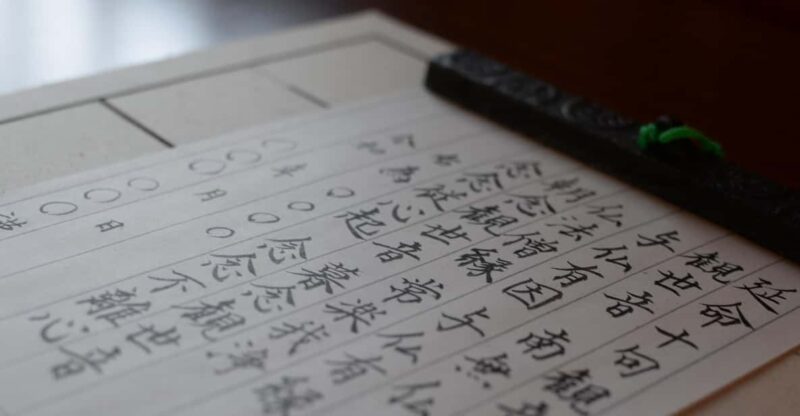 延命十句観音
観世音南無仏
与仏有因与仏有縁
仏法僧縁常楽我浄
朝念観世音暮念観世音
念念従心起念念不離心
右為○○○○
令和年月日
○○○○○○